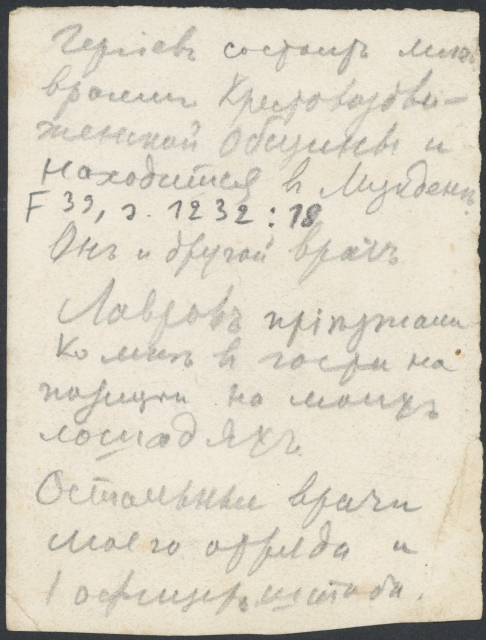 Гергіевъ состоитъ млад.
врачемъ Крестовоздви-
женской Общины и
находится въ Мукденѣ.
F 33, э. 1232:18
Онъ и другой врачъ
Лавровъ пріѣзжали
ко мнѣ въ гости на
позиціи на моихъ
лошадяхъ.
Остальные врачи
моего отряда и
1 офицеръ штаба.